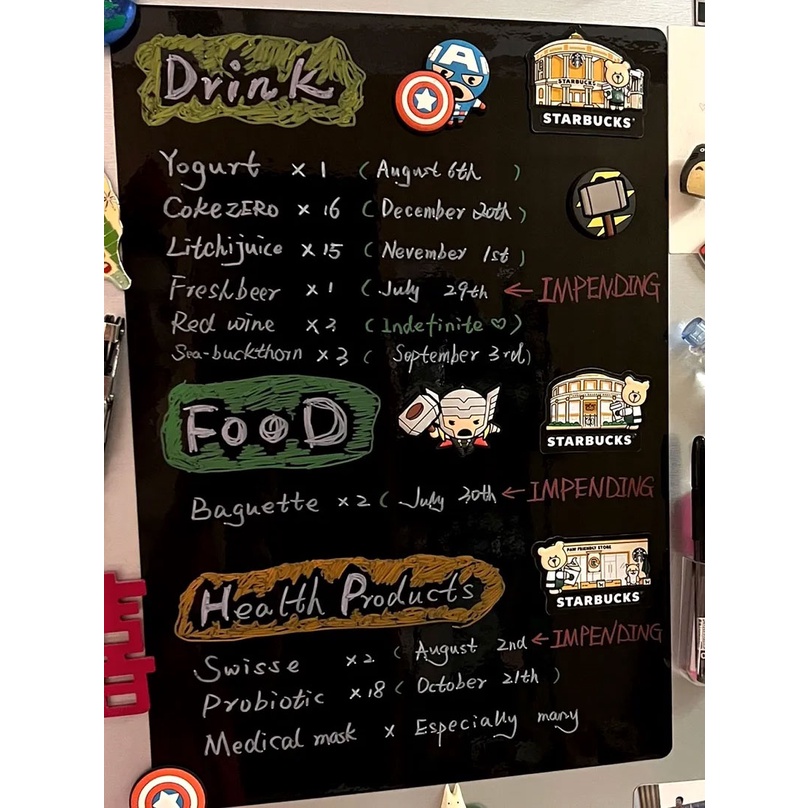 Drink
STARBUCKS
STARBUCKS
Yogurt × 1 ( August 6th )
Coke ZERO × 16 ( December 20th )
Litchijuice × 15 ( Nevember 1st )
Freshbeer × 1 ( July 29th ← IMPENDING
Red wine × 2 ( Indefinite ♡ )
Sea-buckthorn × 3 ( September 3rd )
FooD
STARBUCKS
Baguette × 2 ( July 30th ← IMPENDING
PAW FRIENDLY STORE
STARBUCKS
Health Products
Swisse × 2 ( August 2nd ← IMPENDING
Probiotic × 18 ( October 21th )
Medical mask × Especially many
囍
A